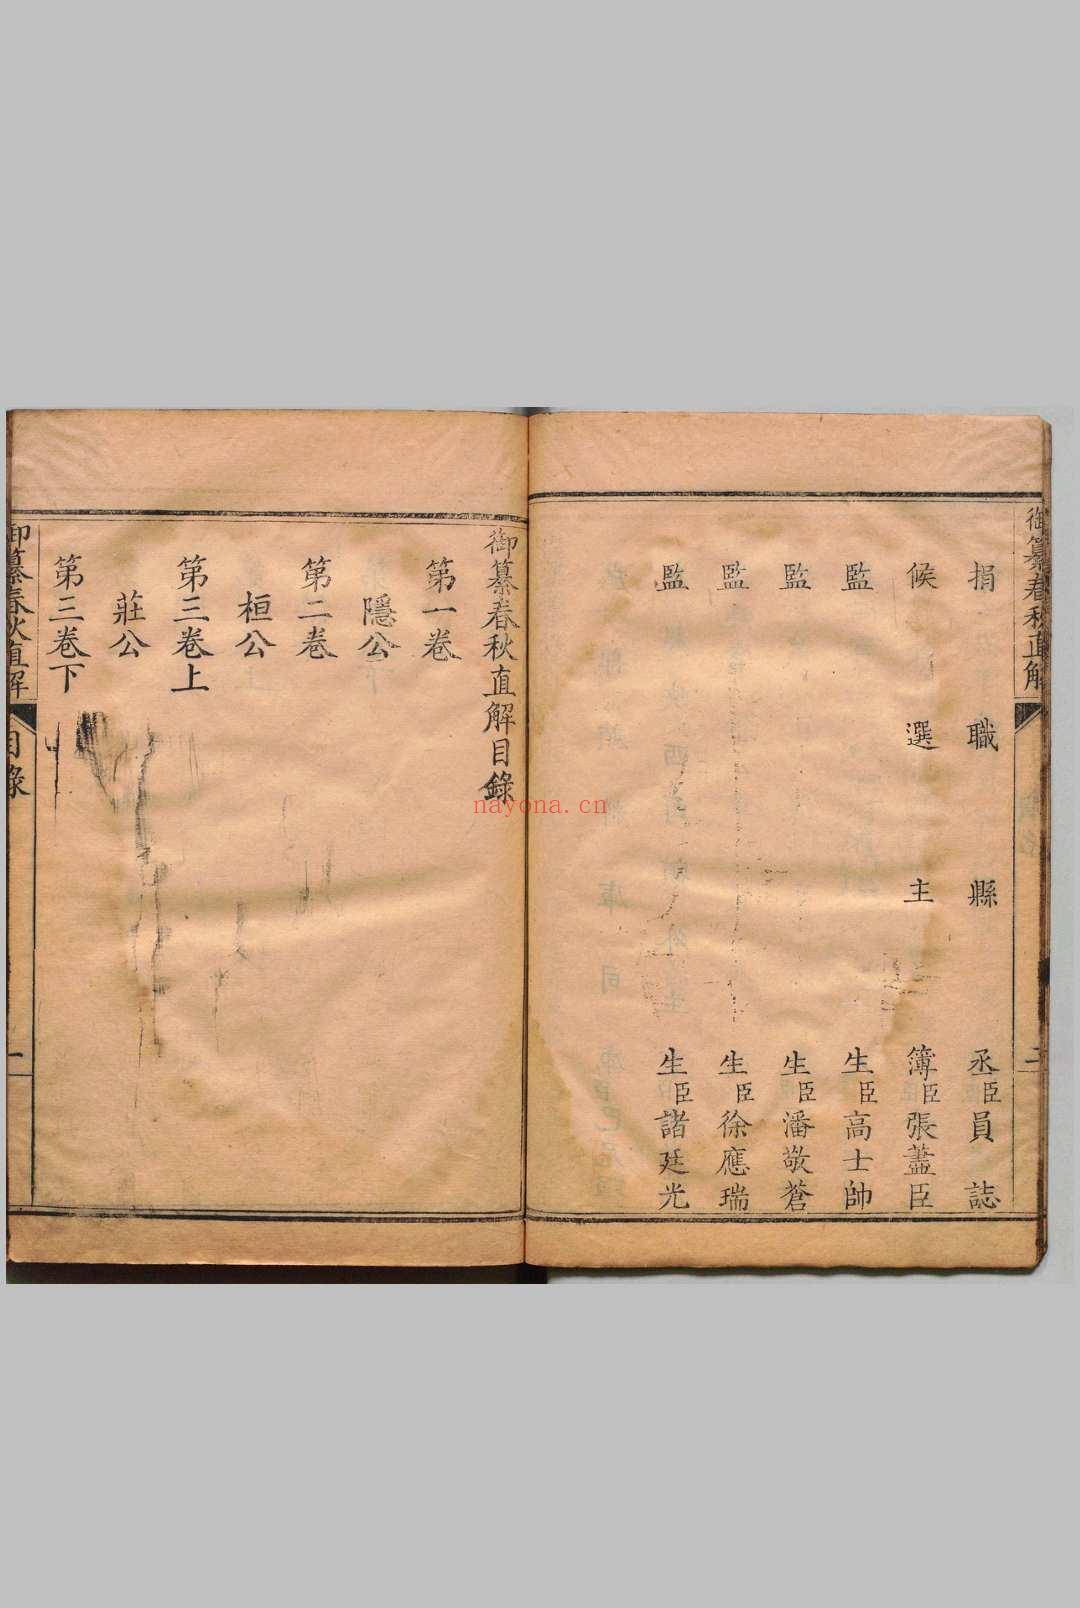 御纂春秋直解
二
捐職縣丞臣員誌
候選主簿臣張藎臣
監生臣高士帥
監生臣潘敬蒼
監生臣徐應瑞
監生臣諸廷光
御纂春秋直解目錄
第一卷
隱公
第二卷
桓公
第三卷上
莊公
第三卷下
御纂春秋直解
目錄
一
nayona.cn